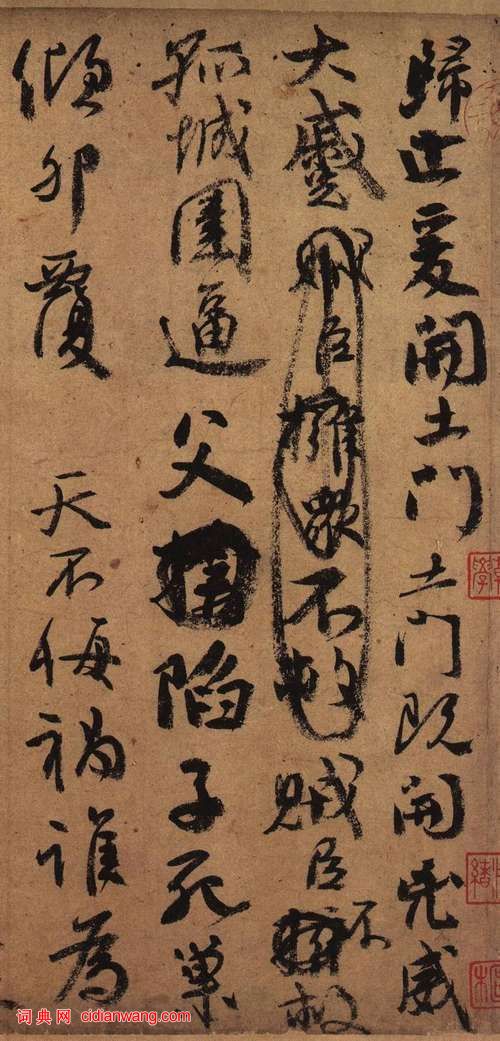 歸止爰開土門土門既開兇威
大蹙賊臣擁衆不救賊臣不救
孤城圍逼父陷子死巢
傾卵覆 天不悔禍誰為
词典网 cidianwang.com